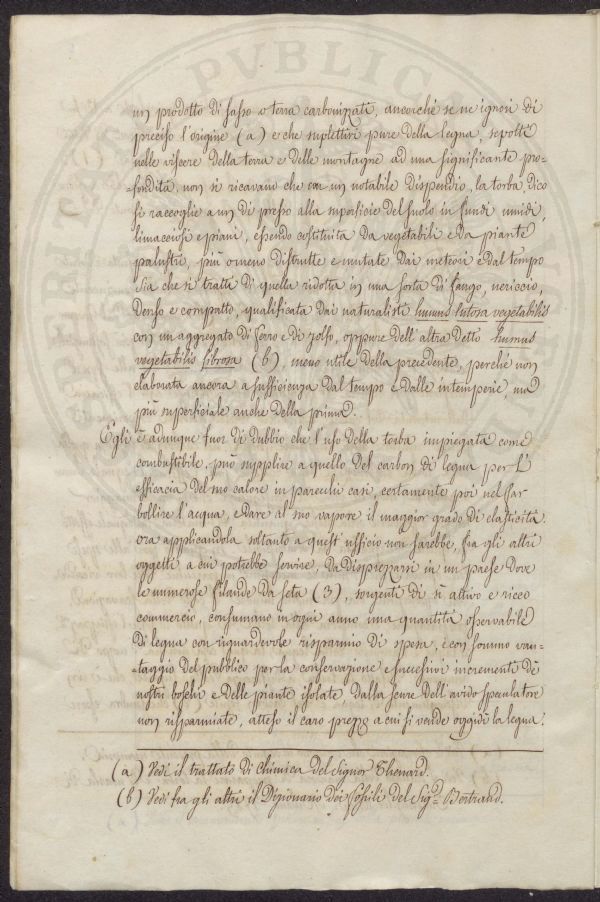 un prodotto di sasso o terra carbonizzati, ancorchè se ne ignori di
preciso l'origine (a) e che suplettivi pure della legna, sepolti
nelle viscere della terra e delle montagne ad una significante pro=
=fondità, non si ricavano che con un notabile dispendio, la torba, dico
si raccoglie a un dì presso alla superficie del suolo in fundi umidi,
limacciosi e piani, essendo costituita da vegetabili e da piante
palustri, più o meno distrutte e mutate dai meteori e dal tempo
sia che si tratti di quella ridotta in una sorta di fango, nericcio,
denso e compatto, qualificata dai naturalisti humus lutosa vegetabilis
con un aggregato di ferro e di zolfo, oppure dell'altra detto humus
vegetabilis fibrosa (b), meno utile della precedente, perchè non
elaborata ancora a sufficienza dal tempo e dalle intemperie, ma
più superficiale anche della prima.
Egli è adunque fuor di dubbio che l'uso della torba impiegata come
combustibile, può supplire a quello del carbon di legna per l'
efficacia del suo calore in parecchi casi, certamente poi nel far
bollire l'acqua, e dare al suo vapore il maggior grado di elasticità.
ora applicandola soltanto a quest'ufficio non sarebbe, fra gli altri
oggetti a cui potrebbe servire, da disprezzarsi in un paese dove
le numerose filande da seta (3), sorgenti di sì attivo e ricco
commercio, consumano in ogni anno una quantità osservabile
di legna con riguardevole risparmio di spesa, e con sommo van=
=taggio del pubblico per la conservazione e successivi incrementi dè
nostri boschi e delle piante isolate, dalla scure dell'avido speculatore
non risparmiate, atteso il caro prezzo a cui si vende oggidì la legna.
(a) Vedi il trattato di chimica del Signor Thenard.
(b) Vedi fra gli altri il Dizionario dei fossili del Sig.r Bertrand.